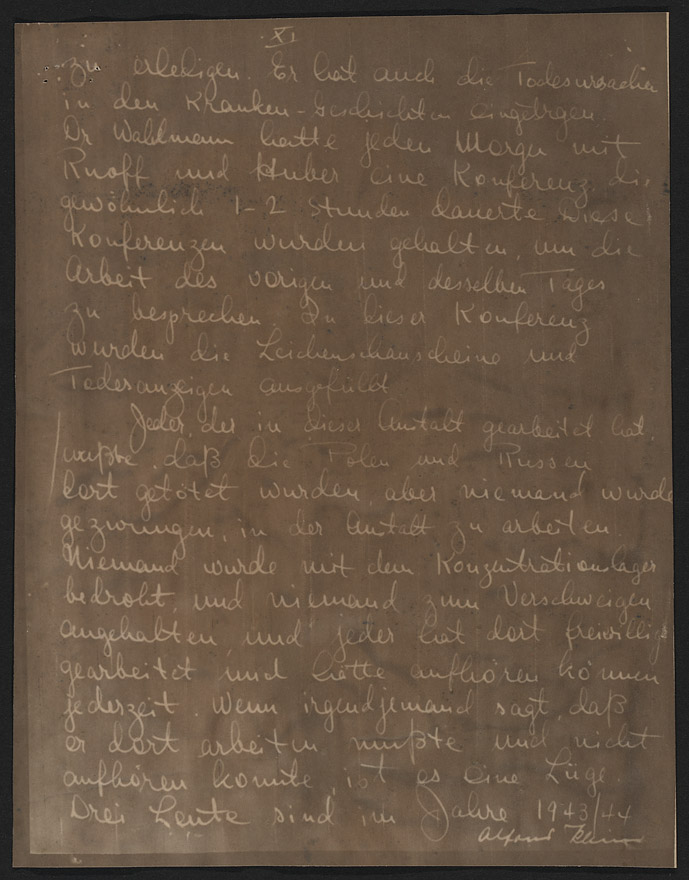 XI
zu erledigen. Er hat auch die Todesursachen
in den Kranken-Geschichten eingetragen.
Dr Wahlmann hatte jeden Morgen mit
Ruoff und Huber eine Konferenz, die
gewöhnlich 1-2 Stunden dauerte. Diese
Konferenzen wurden gehalten, um die
Arbeit des vorigen und desselben Tages
zu besprechen. In dieser Konferenz
wurden die Leichenschauscheine und
Todesanzeigen ausgefüllt
Jeder, der in dieser Anstalt gearbeitet hat,
wußte, daß die Polen und Russen
dort getötet wurden, aber niemand wurde
gezwungen, in der Anstalt zu arbeiten.
Niemand wurde mit dem Konzentrationslager
bedroht, und niemand zum Verschweigen
angehalten, und jeder hat dort freiwillig
gearbeitet und hätte aufhören können
jederzeit. Wenn irgendjemand sagt, daß
er dort arbeiten mußte und nicht
aufhören konnte, ist es eine Lüge.
Drei Leute sind im Jahre 1943/44
Alfons Klein